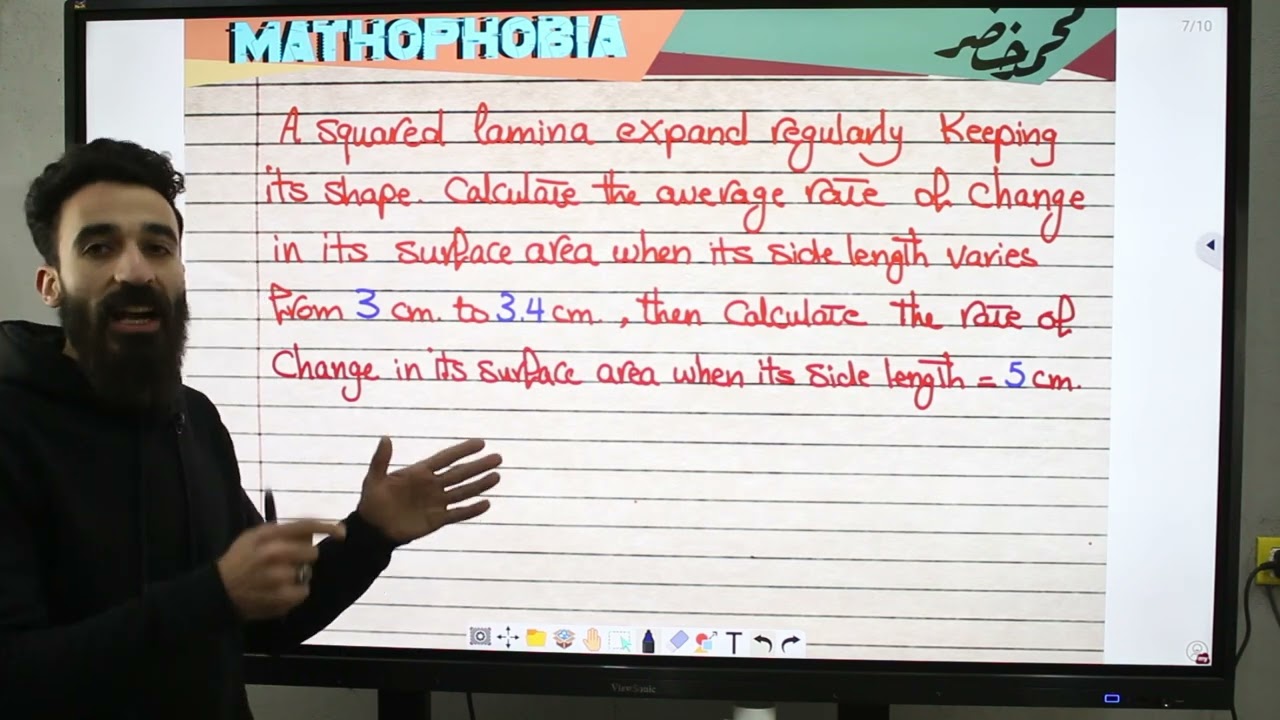 MATHOPHOBIA
محمد خضر
7/10
A squared lamina expand regularly Keeping
its shape. Calculate the average rate of change
in its surface area when its side length varies
from 3 cm. to 3.4 cm. , then Calculate the rate of
Change in its surface area when its side length = 5 cm.
T
ViewSonic